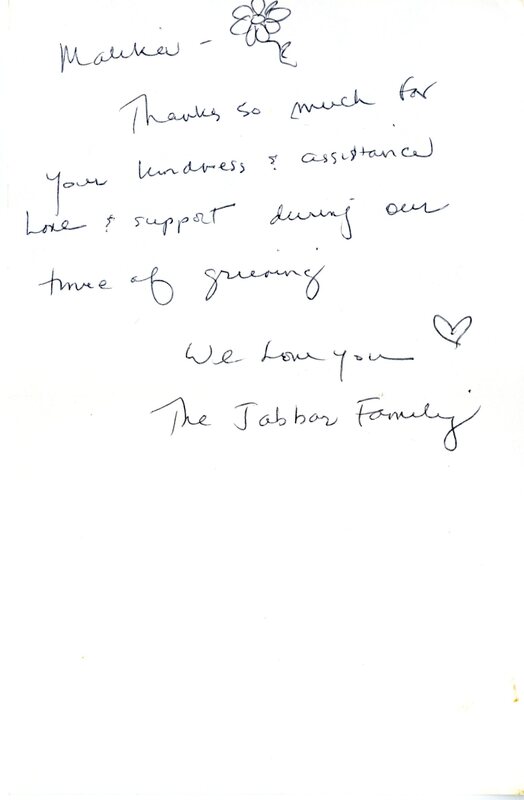 Malika -
Thanks so much for
your kindness & assistance
Love & support during our
time of grieving
We Love you
The Jabbar Family